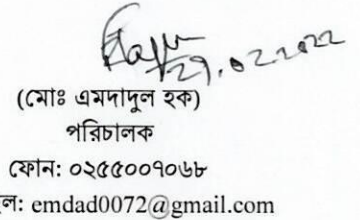 ২৭.০২.২০২২
(মোঃ এমদাদুল হক)
পরিচালক
ফোন: ০২৫৫০০৭০৬৮
ল: emdad0072@gmail.com